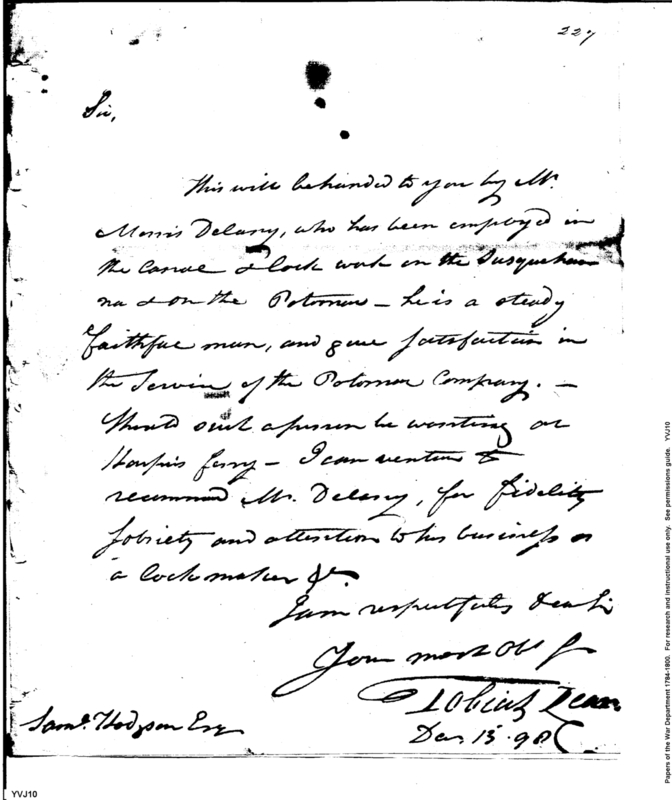 227
Sir,
This will be handed to you by Mr.
Morris Delany, who has been employed in
the Canal & Lock work on the Susquehan
na & on the Potomac – he is a steady
faithful man, and gave satisfaction in
the Service of the Potomac Company. –
Should such a person be wanting at
Harpers ferry – I can venture to
recommend Mr. Delany, for fidelity
sobriety and attention to his business as
a Lock maker &c.
I am respectfully Dear Sir
Your most Obt
Tobias Lear
Dec. 13. 98
Saml. Hodgson Esq
YVJ10
Papers of the War Department 1784-1800. For research and instructional use only. See permissions guide. YVJ10